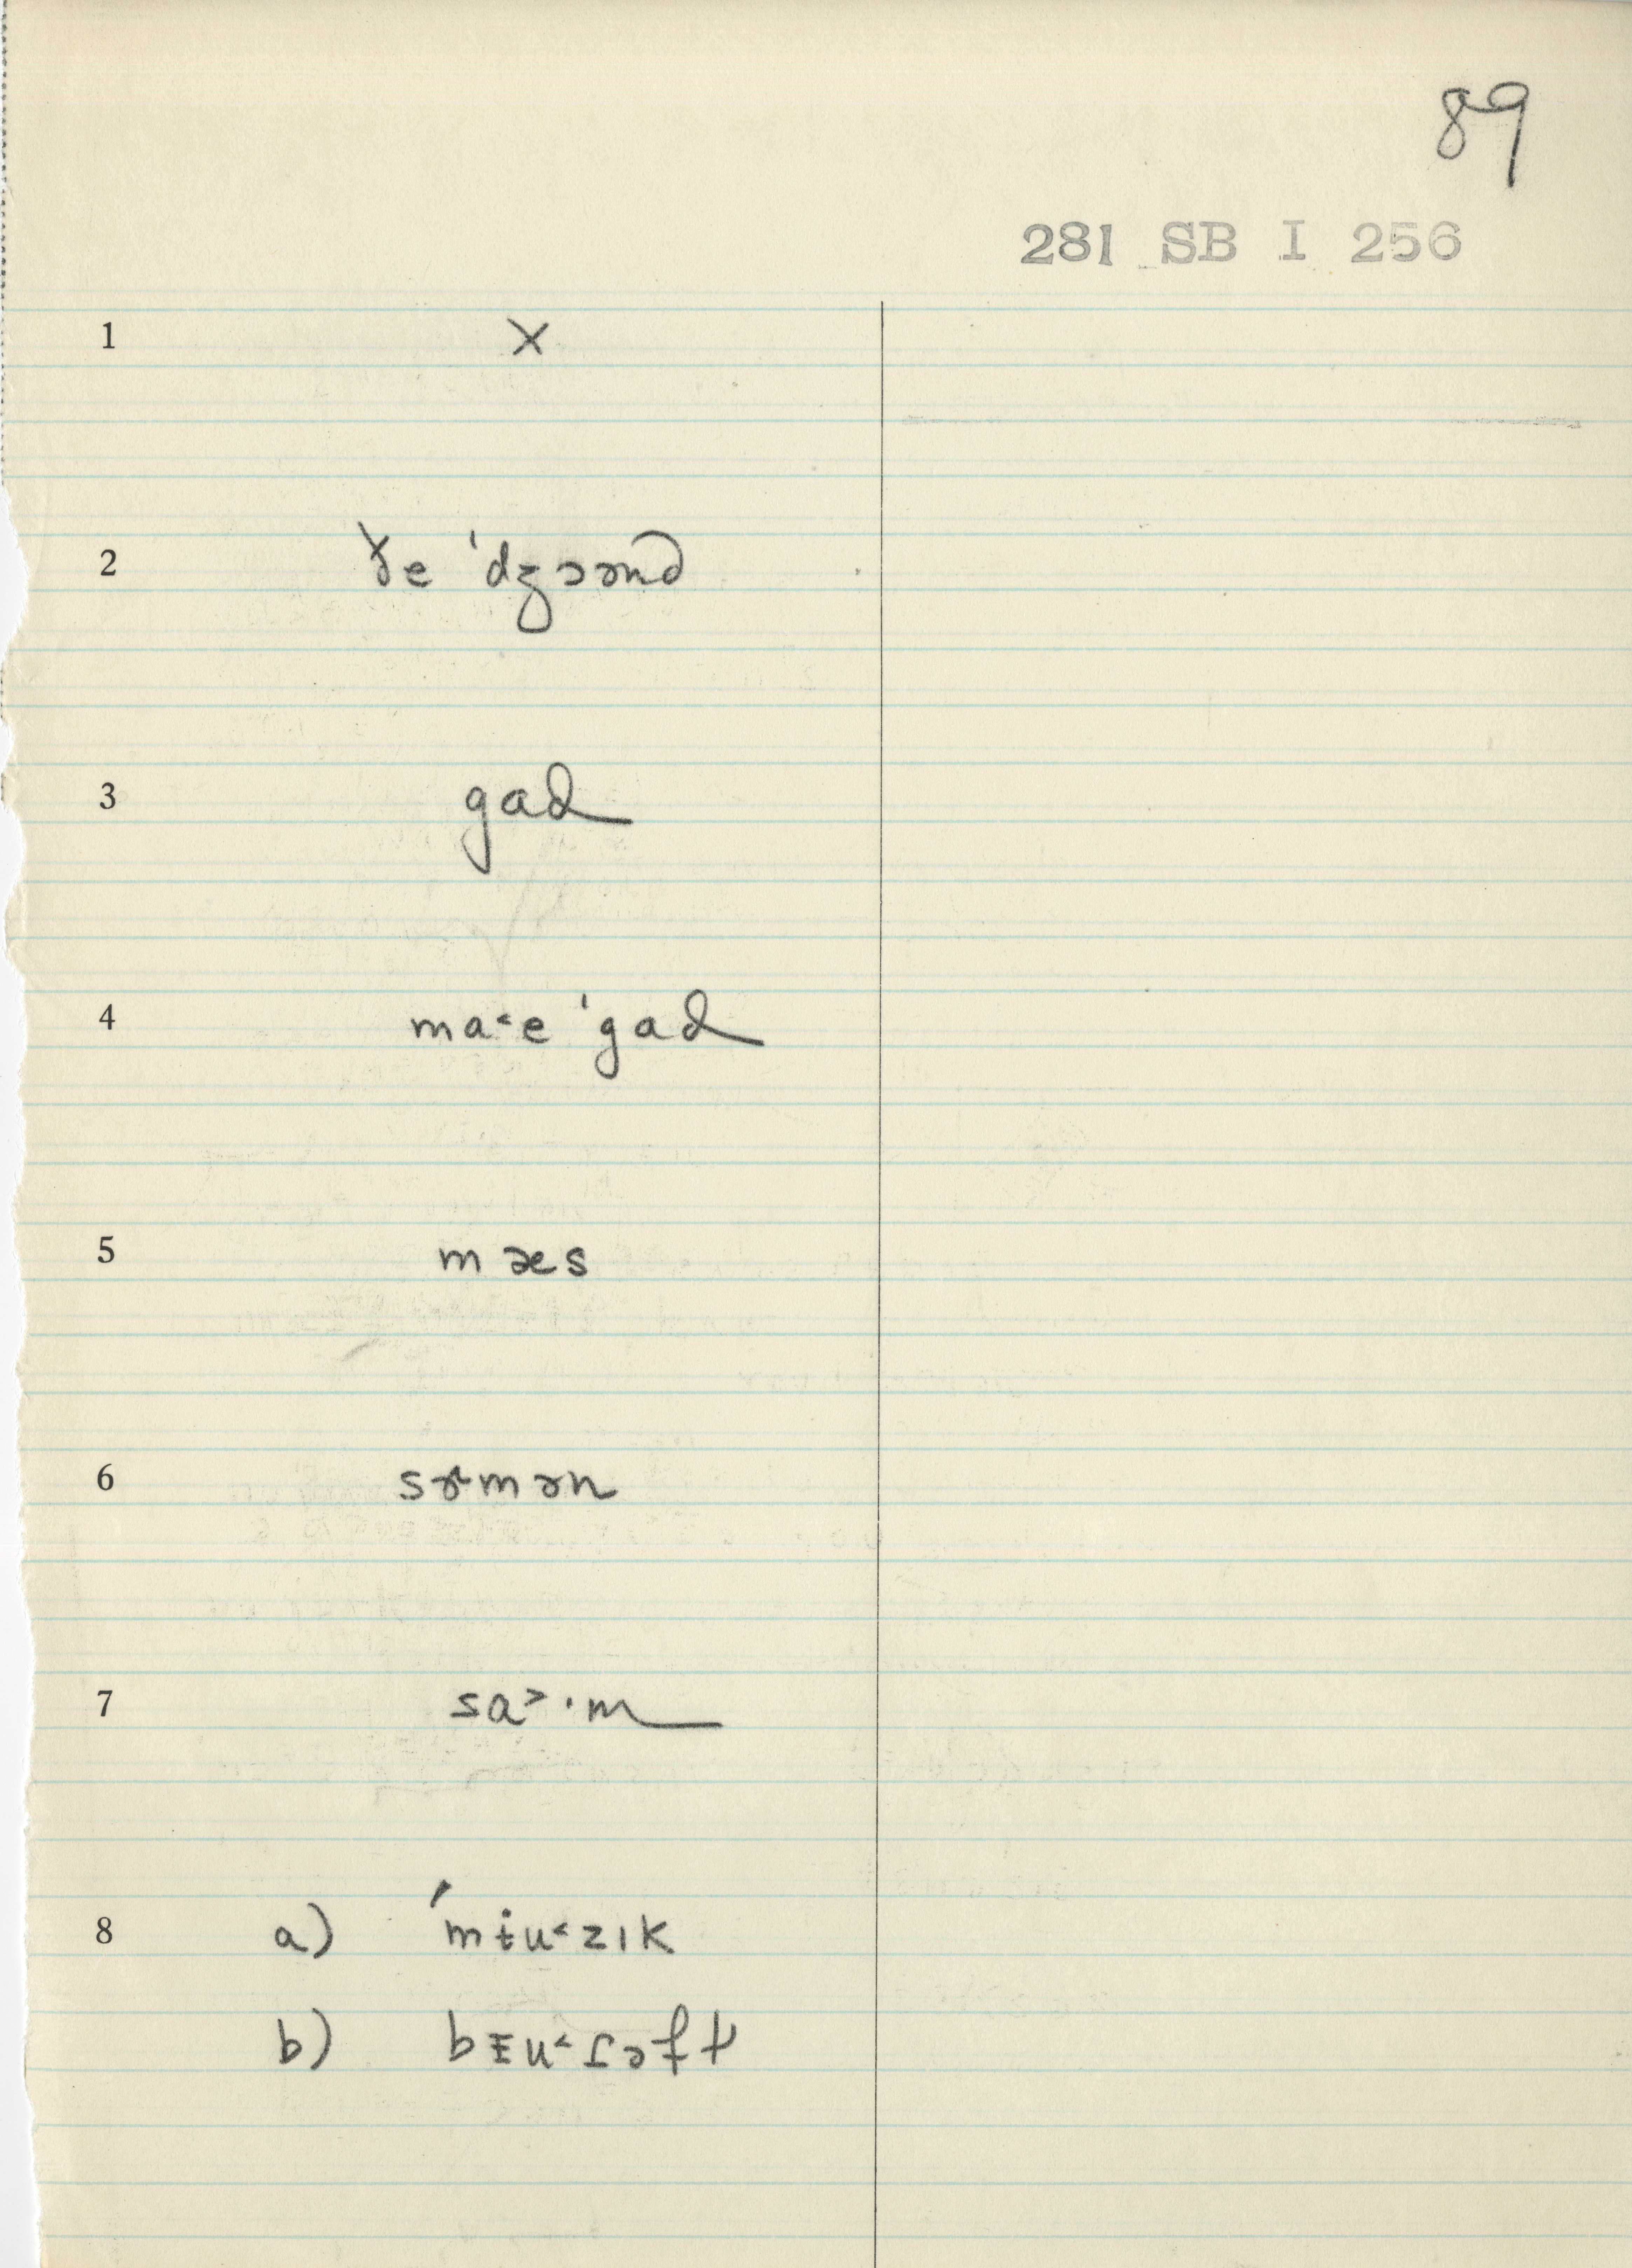 89
281 SB I 256
1 x
2 ðe ˈdʒɔənd
3 gad
4 ma˂e ˈgad
5 mæs
6 sɝmən
7 sa˃·m
8 a) ˈmɨu˂zɪk
b) bɪu˂ɾəft